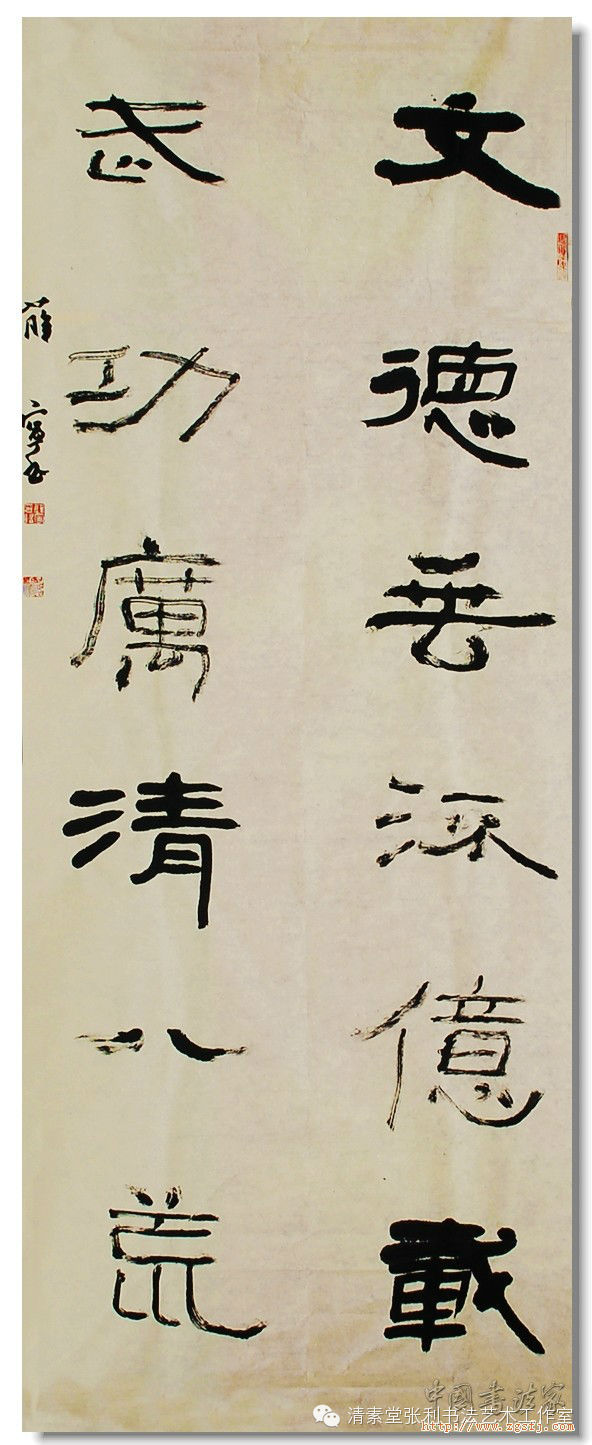 文德億載
武功厲清八荒
薛寧書
中國書法家
清素堂张利书法艺术工作室
http://www.zgsfj.com